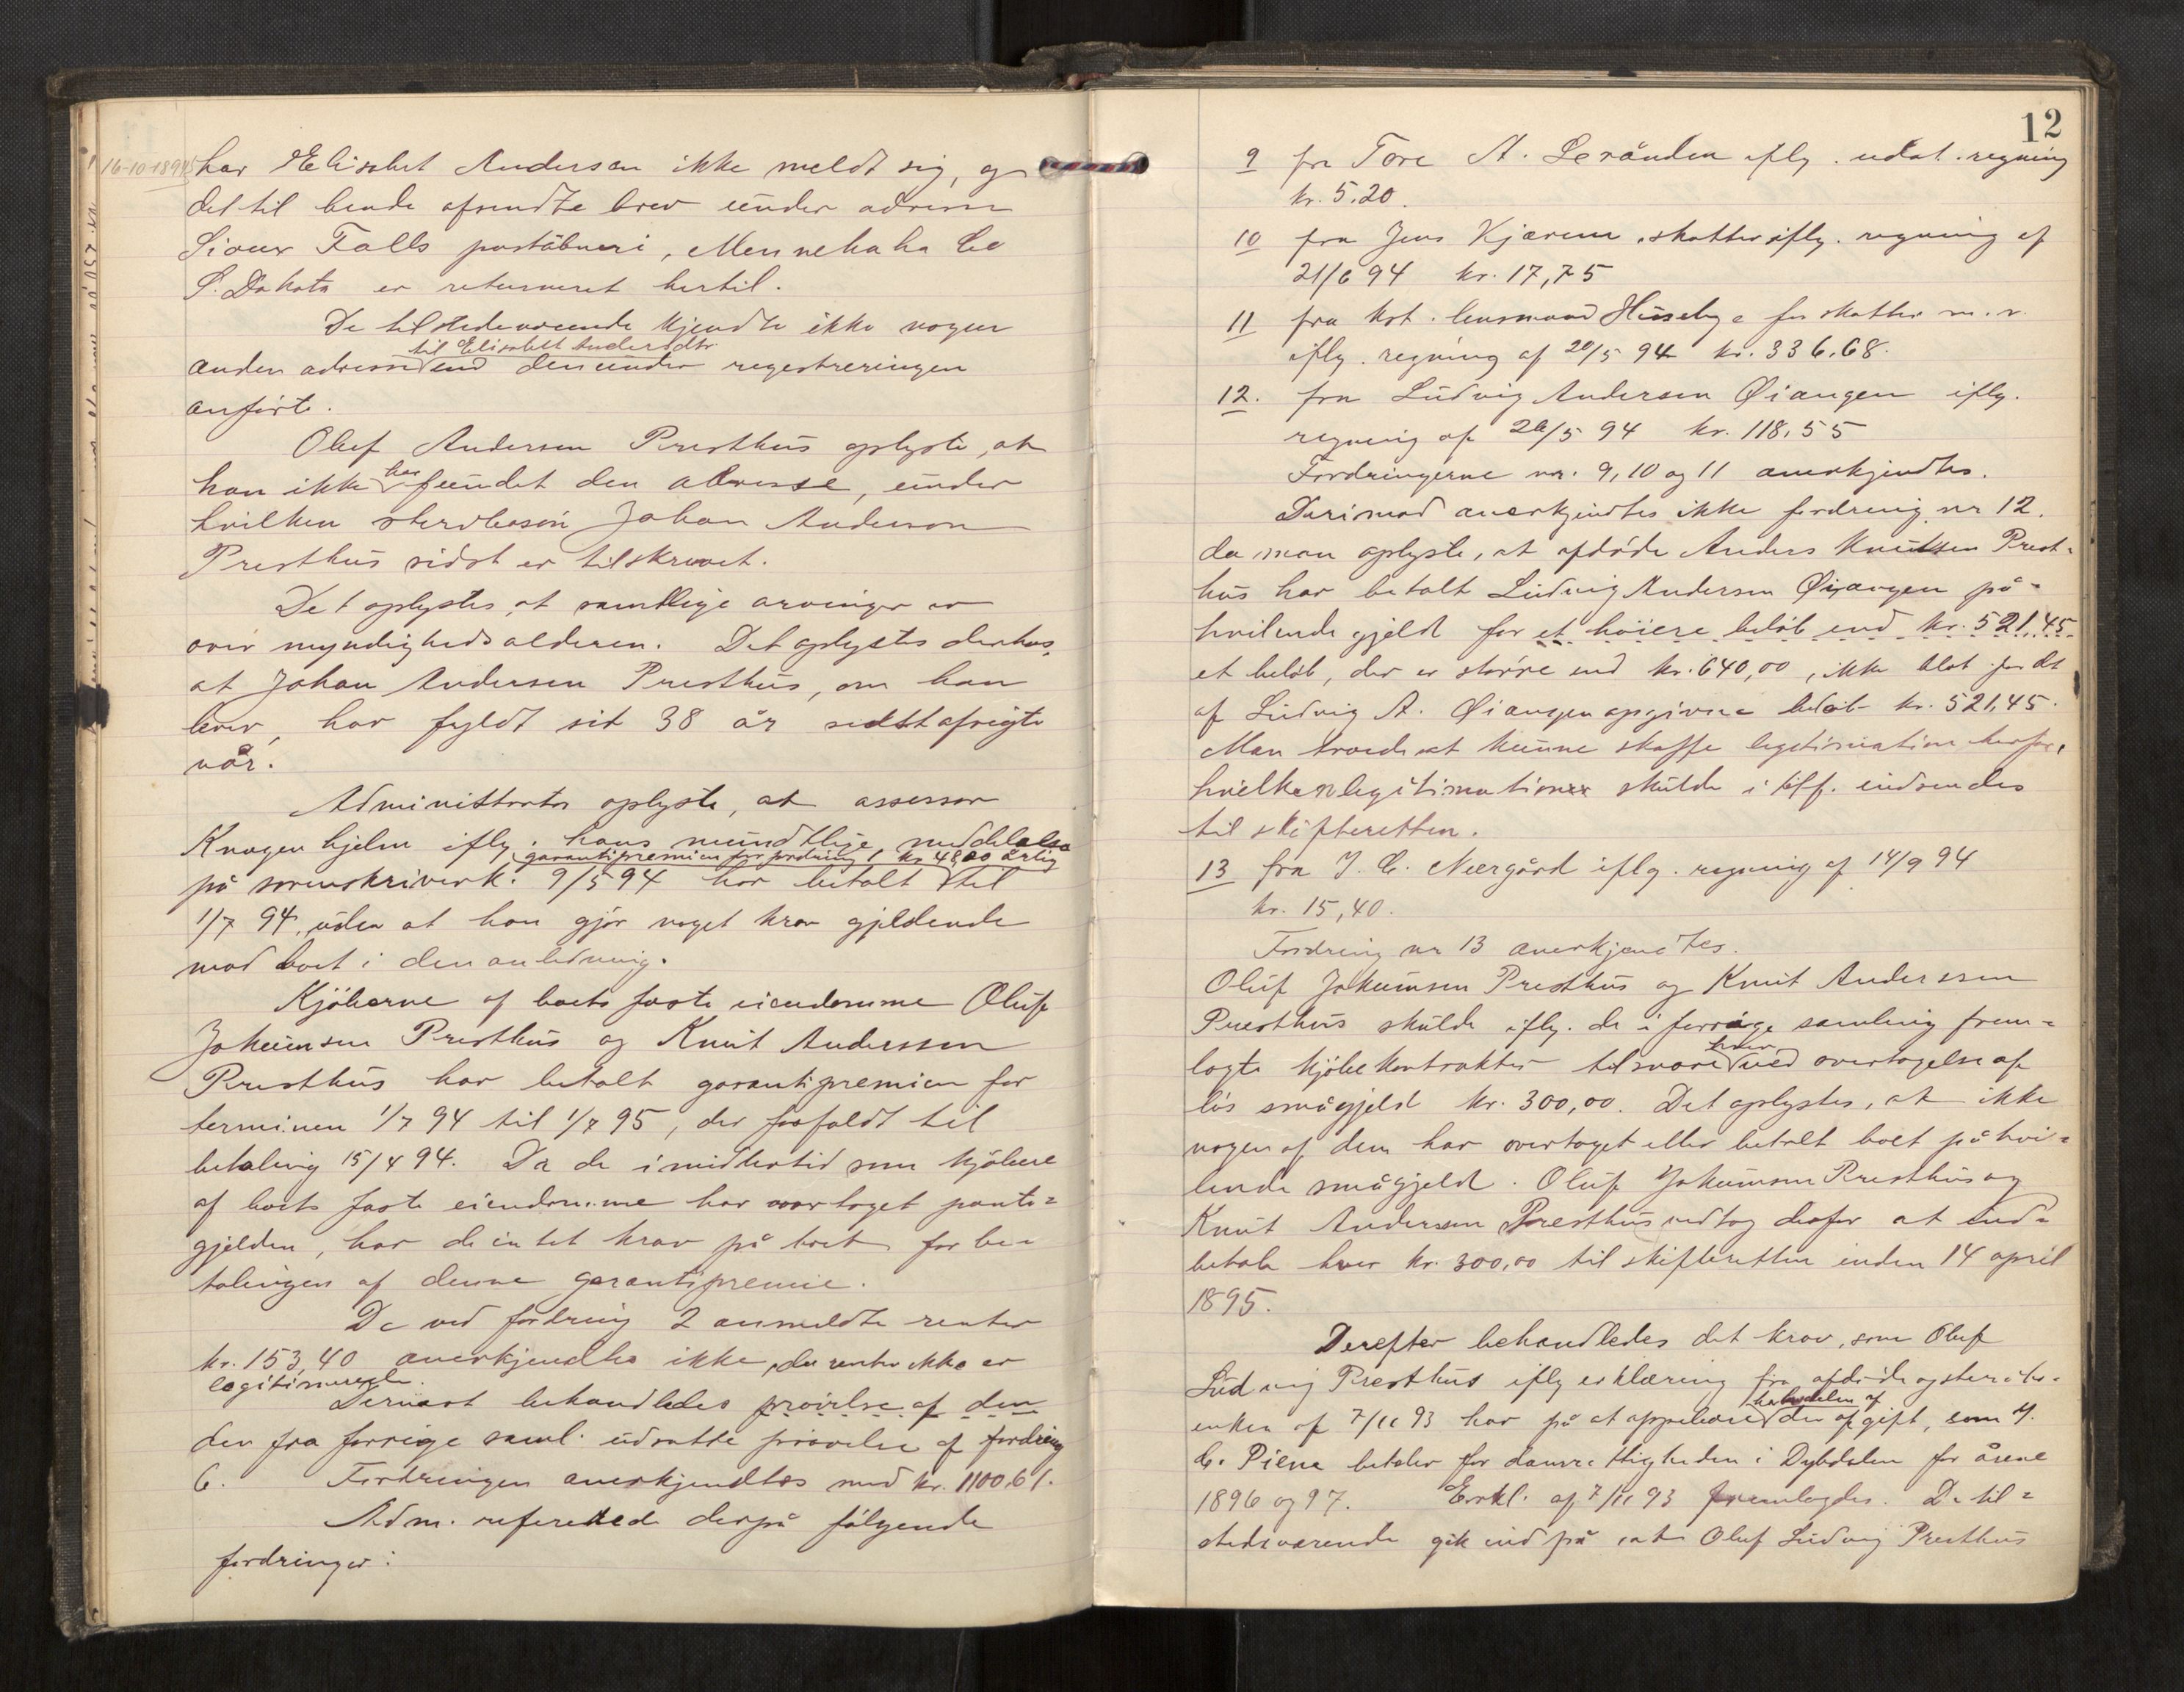 16-10-1894
har Elisabet Anderson ikke meldt sig, og
det til hende afsendte brev under adresse
Sioux Falls poståbneri, Mennehaha Co
S. Dakota er returneret hertil.
De tilstedeværende kjendte ikke nogen
til Elisabet Andersdtr.
anden adresse end den under registreringen
anførte.
Oluf Andersen Presthus oplyste, at
han ikke har fundet den adresse, under
hvilken stervbosøn Johan Anderson
Presthus sidst er tilskrevet.
Det oplystes, at samtlige arvinger er
over myndighedsalderen. Det oplystes derhos,
at Johan Andersen Presthus, om han
lever, har fyldt sit 38 år sidstafvigte
vår.
Administrator oplyste, at assessor
Knagenhjelm iflg. hans mundtlige meddelelse
garantipremien for fordring 1 kr 48,00 årlig
på sorenskriverk. 9/5 94 har betalt til
1/7 94, uden at han gjør noget krav gjeldende
mod boet i den anledning.
Kjøberne af boets faste eiendomme Oluf
Jokumsen Presthus og Knut Anderssen
Presthus har betalt garantipremien for
terminen 1/7 94 til 1/7 95, der forfaldt til
betaling 15/4 94. Da de imidlertid som kjøbere
af boets faste eiendomme har overtaget pante=
gjelden, har de intet krav på boet for be=
talingen af denne garantipremie.
De ved fordring 2 anmeldte renter
kr. 153,40 anerkjendtes ikke, da renter ikke er
legitimerede.
Dernæst behandledes prøvelse af den
den fra forrige saml. udsatte prøvelse af fordring
6. Fordringen anerkjendtes med kr. 1100,61.
Adm. refererede derpå følgende
fordringer:
12
9 fra Tore A. Leränden iflg. udat. regning
kr. 5,20.
10 fra Jens Kjærem, skatter iflg. regning af
21/6 94 kr. 17,75
11 fra kst. lensmand Huseby for skatter m. v.
iflg. regning af 20/5 94 kr. 336,68.
12. fra Ludvig Andersen Øiangen iflg.
regning af 20/5 94 kr. 118,55
Fordringerne nr. 9, 10 og 11 anerkjendtes.
Derimod anerkjendtes ikke fordring nr 12.
da man oplyste, at afdøde Anders Knutsen Prest=
hus har betalt Ludvig Andersen Øiangen på=
hvilende gjeld for et høiere beløb end kr. 521,45
et beløb, der er større end kr. 640,00, ikke blot for det
af Ludvig A. Øiangen opgivne beløb kr. 521,45.
Man troede at kunne skaffe legitimation herfor,
hvilken legitimation skulde i tilf. indsendes
til skifteretten.
13 fra J. C. Neergård iflg. regning af 14/9 94
kr. 15,40.
Fordring nr 13 anerkjendtes.
Oluf Jokumsen Presthus og Knut Anderssen
Presthus skulde iflg. de i forrige samling frem=
lagte kjøbekontrakter tilsvare hver ved overtagelse af
løs smågjeld kr. 300,00. Det oplystes, at ikke
nogen af dem har overtaget eller betalt boet påhvi=
lende smågjeld. Oluf Jokumsen Presthus og
Knut Andersen Presthus vedtog derfor at ind=
betale hver kr. 300,00 til skifteretten inden 14 april
1895.
Derefter behandledes det krav, som Oluf
Ludvig Presthus iflg erklæring fra afdøde og stervbo=
enken af 7/11 93 har på at oppebære halvdelen af den afgift, som J.
C. Piene betaler for damrettigheden i Dybdalen for årene
1896 og 97. Erkl. af 7/11 93 fremlagdes. De til=
stedeværende gik ind på, at Oluf Ludvig Presthus